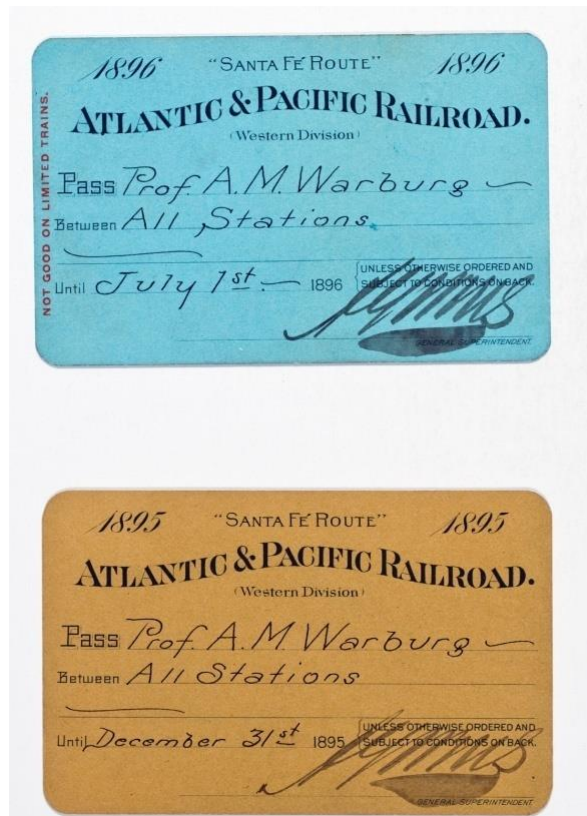 1896 "SANTA FÉ ROUTE" 1896
ATLANTIC & PACIFIC RAILROAD.
(Western Division)
NOT GOOD ON LIMITED TRAINS.
Pass Prof. A. M. Warburg
Between All Stations
Until July 1st 1896 UNLESS OTHERWISE ORDERED AND
SUBJECT TO CONDITIONS ON BACK.
GENERAL SUPERINTENDENT.
1895 "SANTA FÉ ROUTE" 1895
ATLANTIC & PACIFIC RAILROAD.
(Western Division)
Pass Prof. A. M. Warburg
Between All Stations
Until December 31st 1895 UNLESS OTHERWISE ORDERED AND
SUBJECT TO CONDITIONS ON BACK.
GENERAL SUPERINTENDENT.